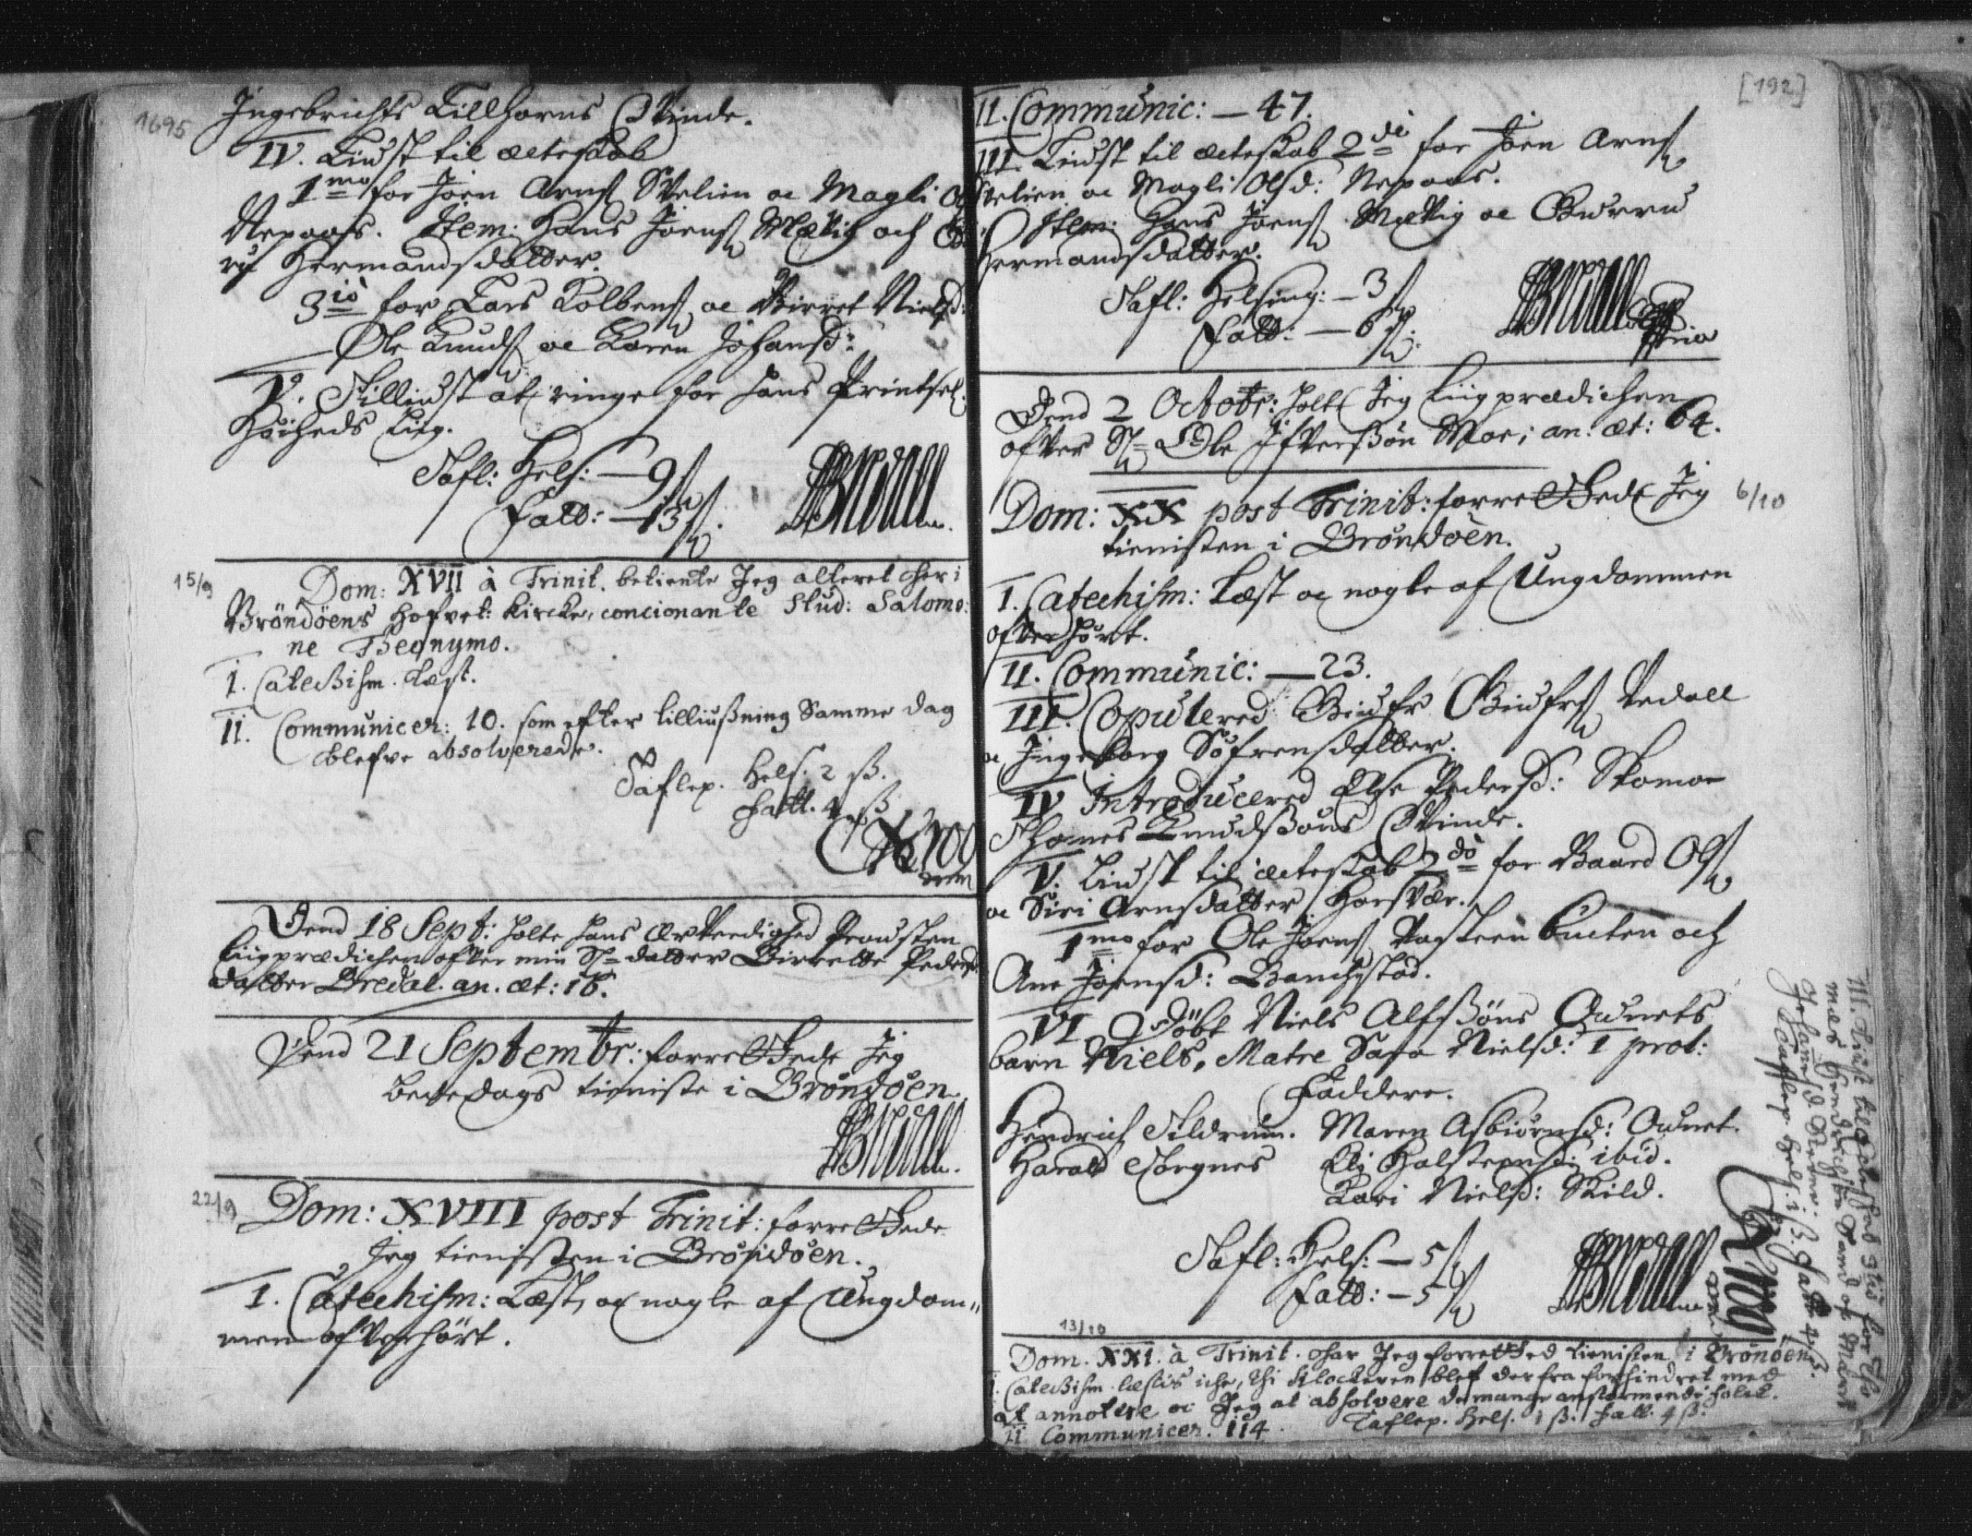 1695
Ingebrichts Tillhorns Qvinde.
IV. Liust til ecteskab
1mo for Joen Arns. Stelien oc Magli Ol
Nepaas. Item: Hans Joens. Mævig och
Hermandsdatter.
3io for Lars Kolbens. oc Birret Nielsd:
Ole Knuds. oc Karen Johansd:
V. Tilliust at ringe for hans Printsel.
Höiheds Liig.
Tafl: Hels: — 9 s.
Fatt: — 13 s.
15/9
Dom: XVII à Trinit. betiente Jeg alteret her i
Bröndöens hofvet: kircke, concionante Stud: Salomo:
ne Theonymo.
I. Catechism. Læst.
II. Communicer: 10. som efter tilliusning Samme dag
blefve absolverede.
Taflep. Hels. 2 ß.
Fatt. 4 ß.
Dend 18 Sept: holte hans Ærverdighed Prousten
liigprædichen ofver min Sl. datter Birrette Peders
datter Bredal. an. æt: 16.
Dend 21 Septembr: forrettede Jeg
Bededags tieniste i Bröndöen.
22/9
Dom: XVIII post Trinit: forrettede
Jeg tienisten i Bröndöen.
I. Catechism: Læst, oc nogle af Ungdom,,
men ofverhört.
[192]
II. Communic: — 47.
III. Liust til ecteskab 2de for Joen Arns.
Stelien oc Magli Olsd: Nepaas.
Item: Hans Joens. Mævig oc Gurru
Hermandsdatter.
Tafl: Helsing: — 3 s.
Fatt: — 6 s.
Dend 2 Octobr: holte Jeg Liigprædichen
ofver Sl. Ole Ifversön Moe; an: æt: 64.
Dom: XX post Trinit: forrettede Jeg 6/10
tienisten i Bröndöen.
I. Catechism: Læst oc nogle af Ungdommen
ofverhört.
II. Communic: — 23.
III. Copulered Giufr Giufrs. Vedall
oc Ingeborg Söfrensdatter.
IV Introducered Else Pedersd: Skomoe
Thomes Knudsöns Qvinde.
V. Liust til ecteskab 2do for Baard Ols.
oc Siri Arnsdatter Horsvær.
1mo for Ole Joens. bucten och
Ane Joensd: Banchstad.
VI Döbt Niels Alfsöns Ounets
barn Niels. Matre Sara Nielsd: 1 prol:
Faddere.
Hendrich Tildrum. Maren Asbiörnsd: Ounet.
Harald Torgnes Eli Halsteensd: ibid.
Kari Nielsd: Skild.
Tafl: Hels: — 5 s.
Fatt: — 5 s.
13/10
Dom. XXI. à Trinit. har Jeg forretted tienisten i Bröndöen
I. Catechism. læstis iche, thi Klockeren blef derfra forhindret med
at annotere oc Jeg at absolvere de mange anstormende folck.
II Communicer. 114. Taflep. Hels. 1 ß. Fatt. 4 ß.
III. Liust til
Taflep Hels: 1 ß. Fatt 4 ß.